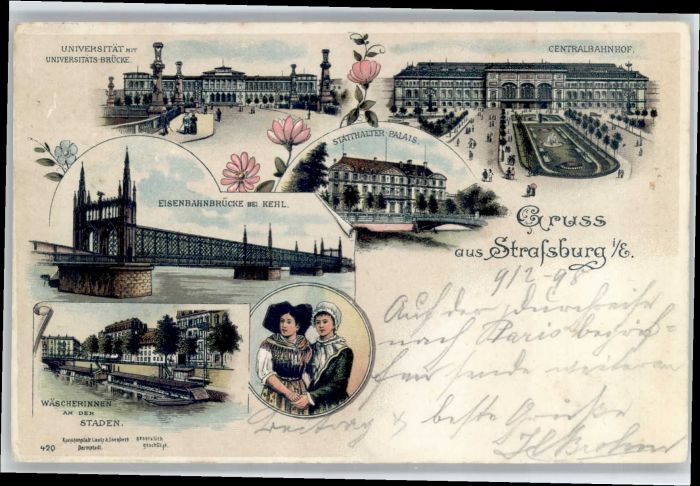 UNIVERSITÄT MIT
UNIVERSITÄTS-BRÜCKE.
CENTRALBAHNHOF.
STATTHALTER-PALAIS.
EISENBAHNBRÜCKE BEI KEHL.
Gruss
aus Straſsburg i/E.
9/2-98
Auf der Durchreise
nach Paris
sende weiteren
Beitrag & beste Grüsse
WÄSCHERINNEN
AN DEN
STADEN.
420
Kunstanstalt Lautz & Isenbeck
Darmstadt.
gesetzlich
geschützt.